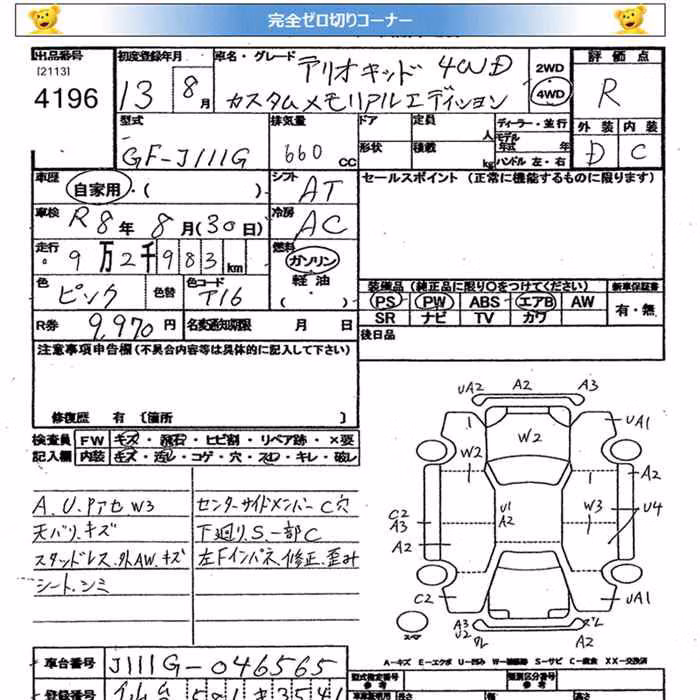 完全ゼロ切りコーナー
出品番号
[2113]
4196
初度登録年月
13 8月
車名・グレード
テリオスキッド 4WD
カスタムメモリアルエディション
2WD
4WD
評価点
R
型式
GF-J111G
排気量
660 CC
ドア
形状
定員
人
積載
kg
ディーラー・並行
モデル
年式 年
ハンドル 左・右
外装 内装
D C
車歴
自家用・( )
シフト
AT
セールスポイント (正常に機能するものに限ります)
車検
R8年 8月(30日)
冷房
AC
走行
9万2千983km
燃料
ガソリン
軽油
( )
色
ピンク
色替
色コード
T16
装備品 (純正品に限り○をつけてください)
新車保証書
PS PW ABS エアB AW
SR ナビ TV カワ
有・無
R券
9,970円
名変通知期限 月 日
後日品
注意事項申告欄(不具合内容等は具体的に記入して下さい)
修復歴 有 〔箇所 〕
検査員
記入欄
FW キズ・飛石・ヒビ割・リペア跡・×要
内装 キズ・汚レ・コゲ・穴・スレ・キレ・破レ
A.U.Pアセ W3
天バリ.キズ
スタッドレス.外AW.キズ
シート.シミ
センターサイドメンバーC穴
下廻りS.一部C
左Fインパネ.修正.歪み
UA2 A2 A3
UA1
W2
W2
A2
C2
A3
U1
A2
W3
U4
A2
C2
UA1
スペア
A3
U2
ズレ
ズレ
A2
A-キズ E-エクボ U-凹み W-補修跡 S-サビ C-腐食 XX-交換済
車台番号
J111G-046565
型式指定番号
類別区分番号
登録番号